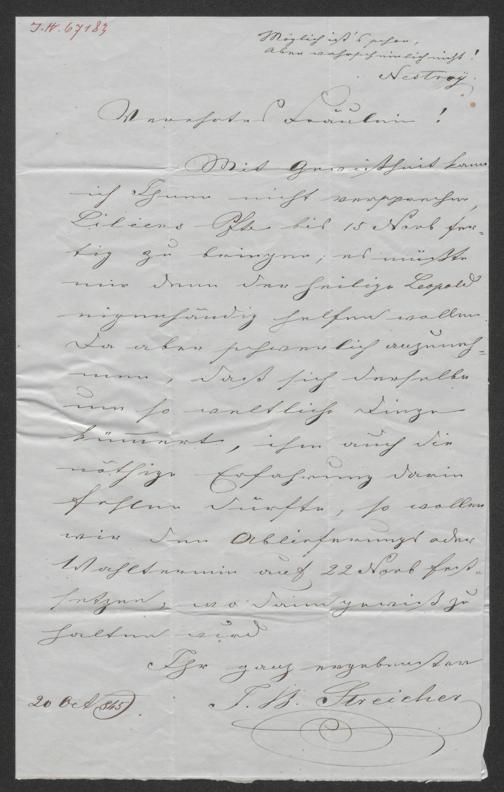 J.N. 67183
Möglich ist's schon,
Aber wahrscheinlich nicht!
Nestroy.
Verehrtes Fräulein!
Mit Gewißheit kann
ich Ihnen nicht versprechen,
bis 15 Novb fer-
tig zu bringen; es müßte
mir denn der heilige Leopold
eigenhändig helfen wollen.
Da aber schwerlich anzuneh-
men, daß sich derselbe
um so weltliche Dinge
kümert, ihm auch die
nöthige Erfahrung darin
fehlen dürfte, so wollen
wir den Ablieferungs oder
Wahltermin auf 22 Novb fest-
setzen, wo dann gewiß zu
halten wird
Ihr ganz ergebenster
J. B. Streicher
20 Oct 845